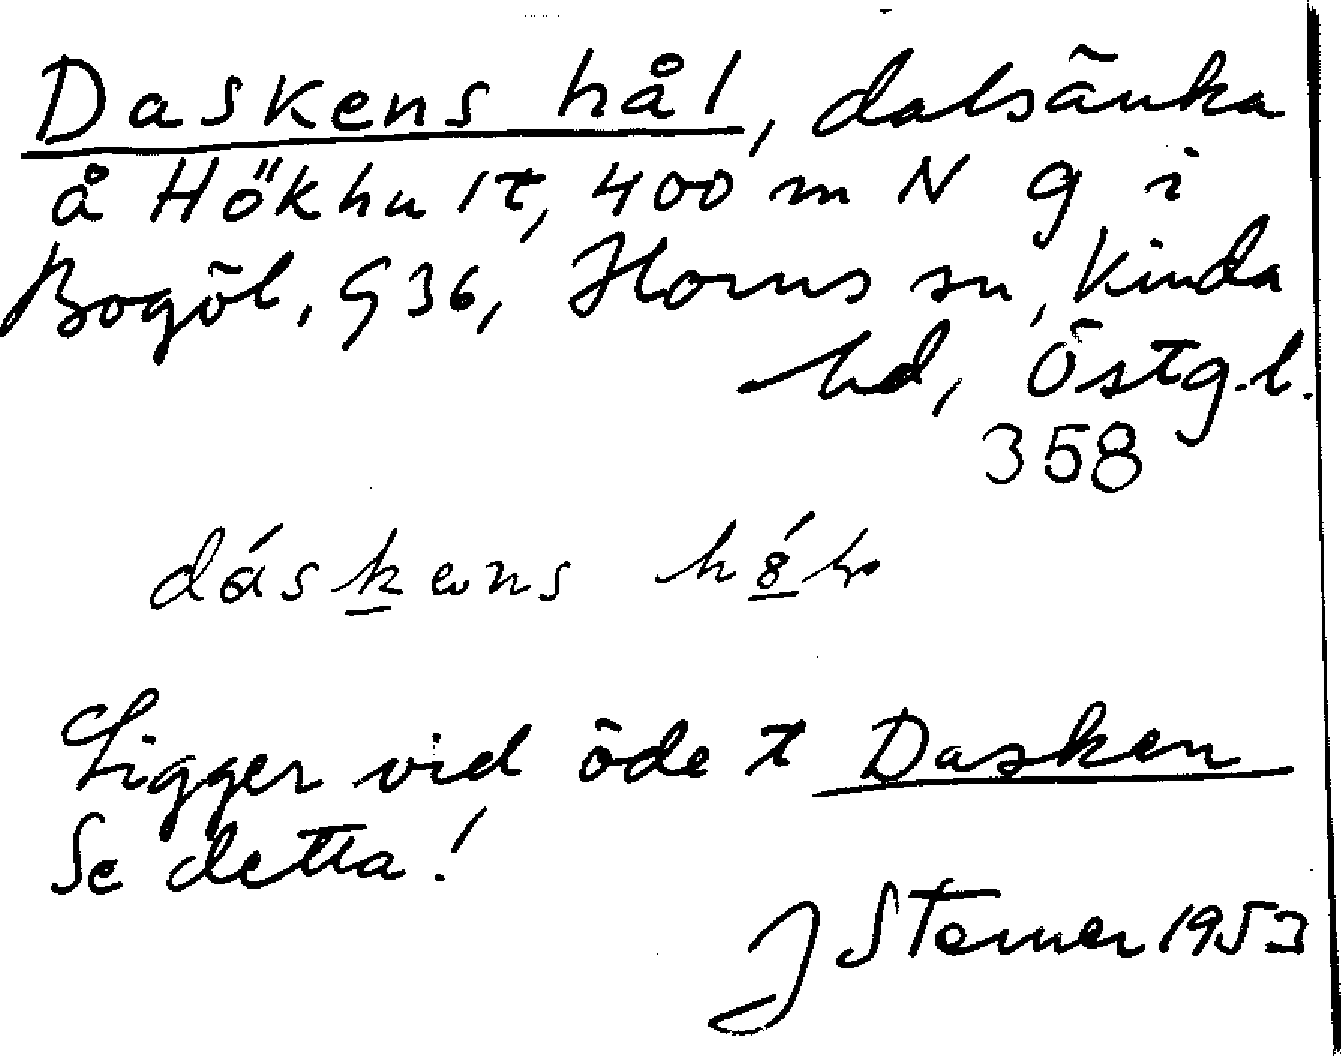 Daskens hål, dalsänka
å Hökhult, 400 m N g i
Bogöl, G 36, Horns sn, Kinda
hd, Östg.l.
358
dáskens
Ligger vid öde t Dasken
Se detta!
J Sterner 1953